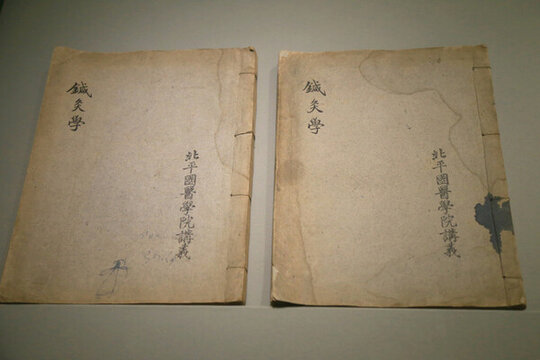 鍼灸學
北平國醫學院講義
鍼灸學
北平國醫學院講義